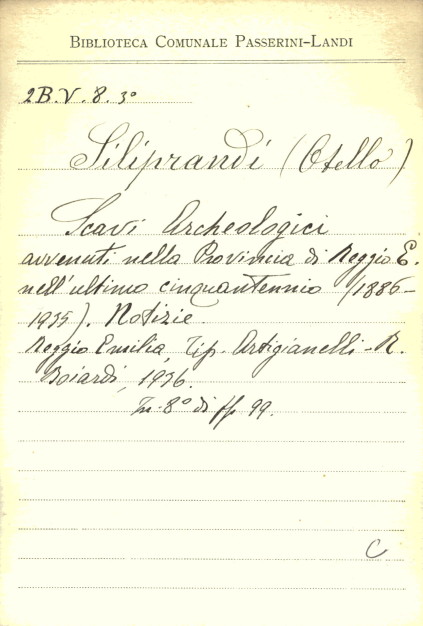 BIBLIOTECA COMUNALE PASSERINI-LANDI
2B.V.8.3°
Siliprandi (Otello)
Scavi Archeologici
avvenuti nella Provincia di Reggio E.
nell'ultimo cinquantennio (1886-
1935). Notizie.
Reggio Emilia, Tip. Artigianelli-R.
Boiardi, 1936.
In-8° di pp 99.
C